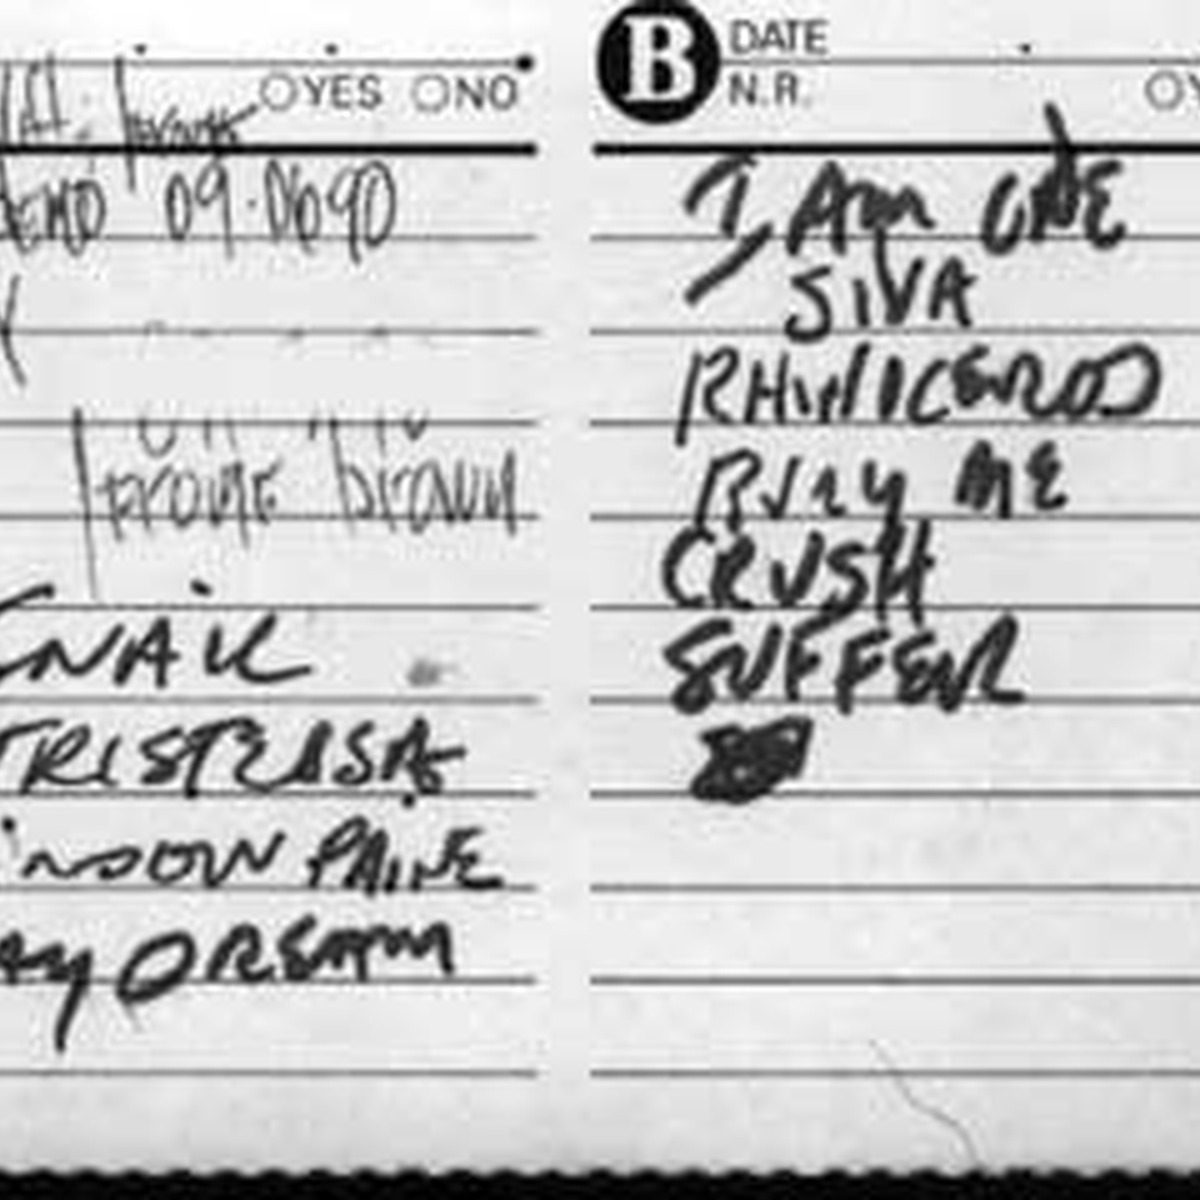 YES NO
DEMO 09.0690
brown
SNAIL
TRISTESSA
WINDOW PAINE
DAY DREAM
B DATE
N.R.
I AM ONE
SIVA
RHINICEROS
BURY ME
CRUSH
SUFFER